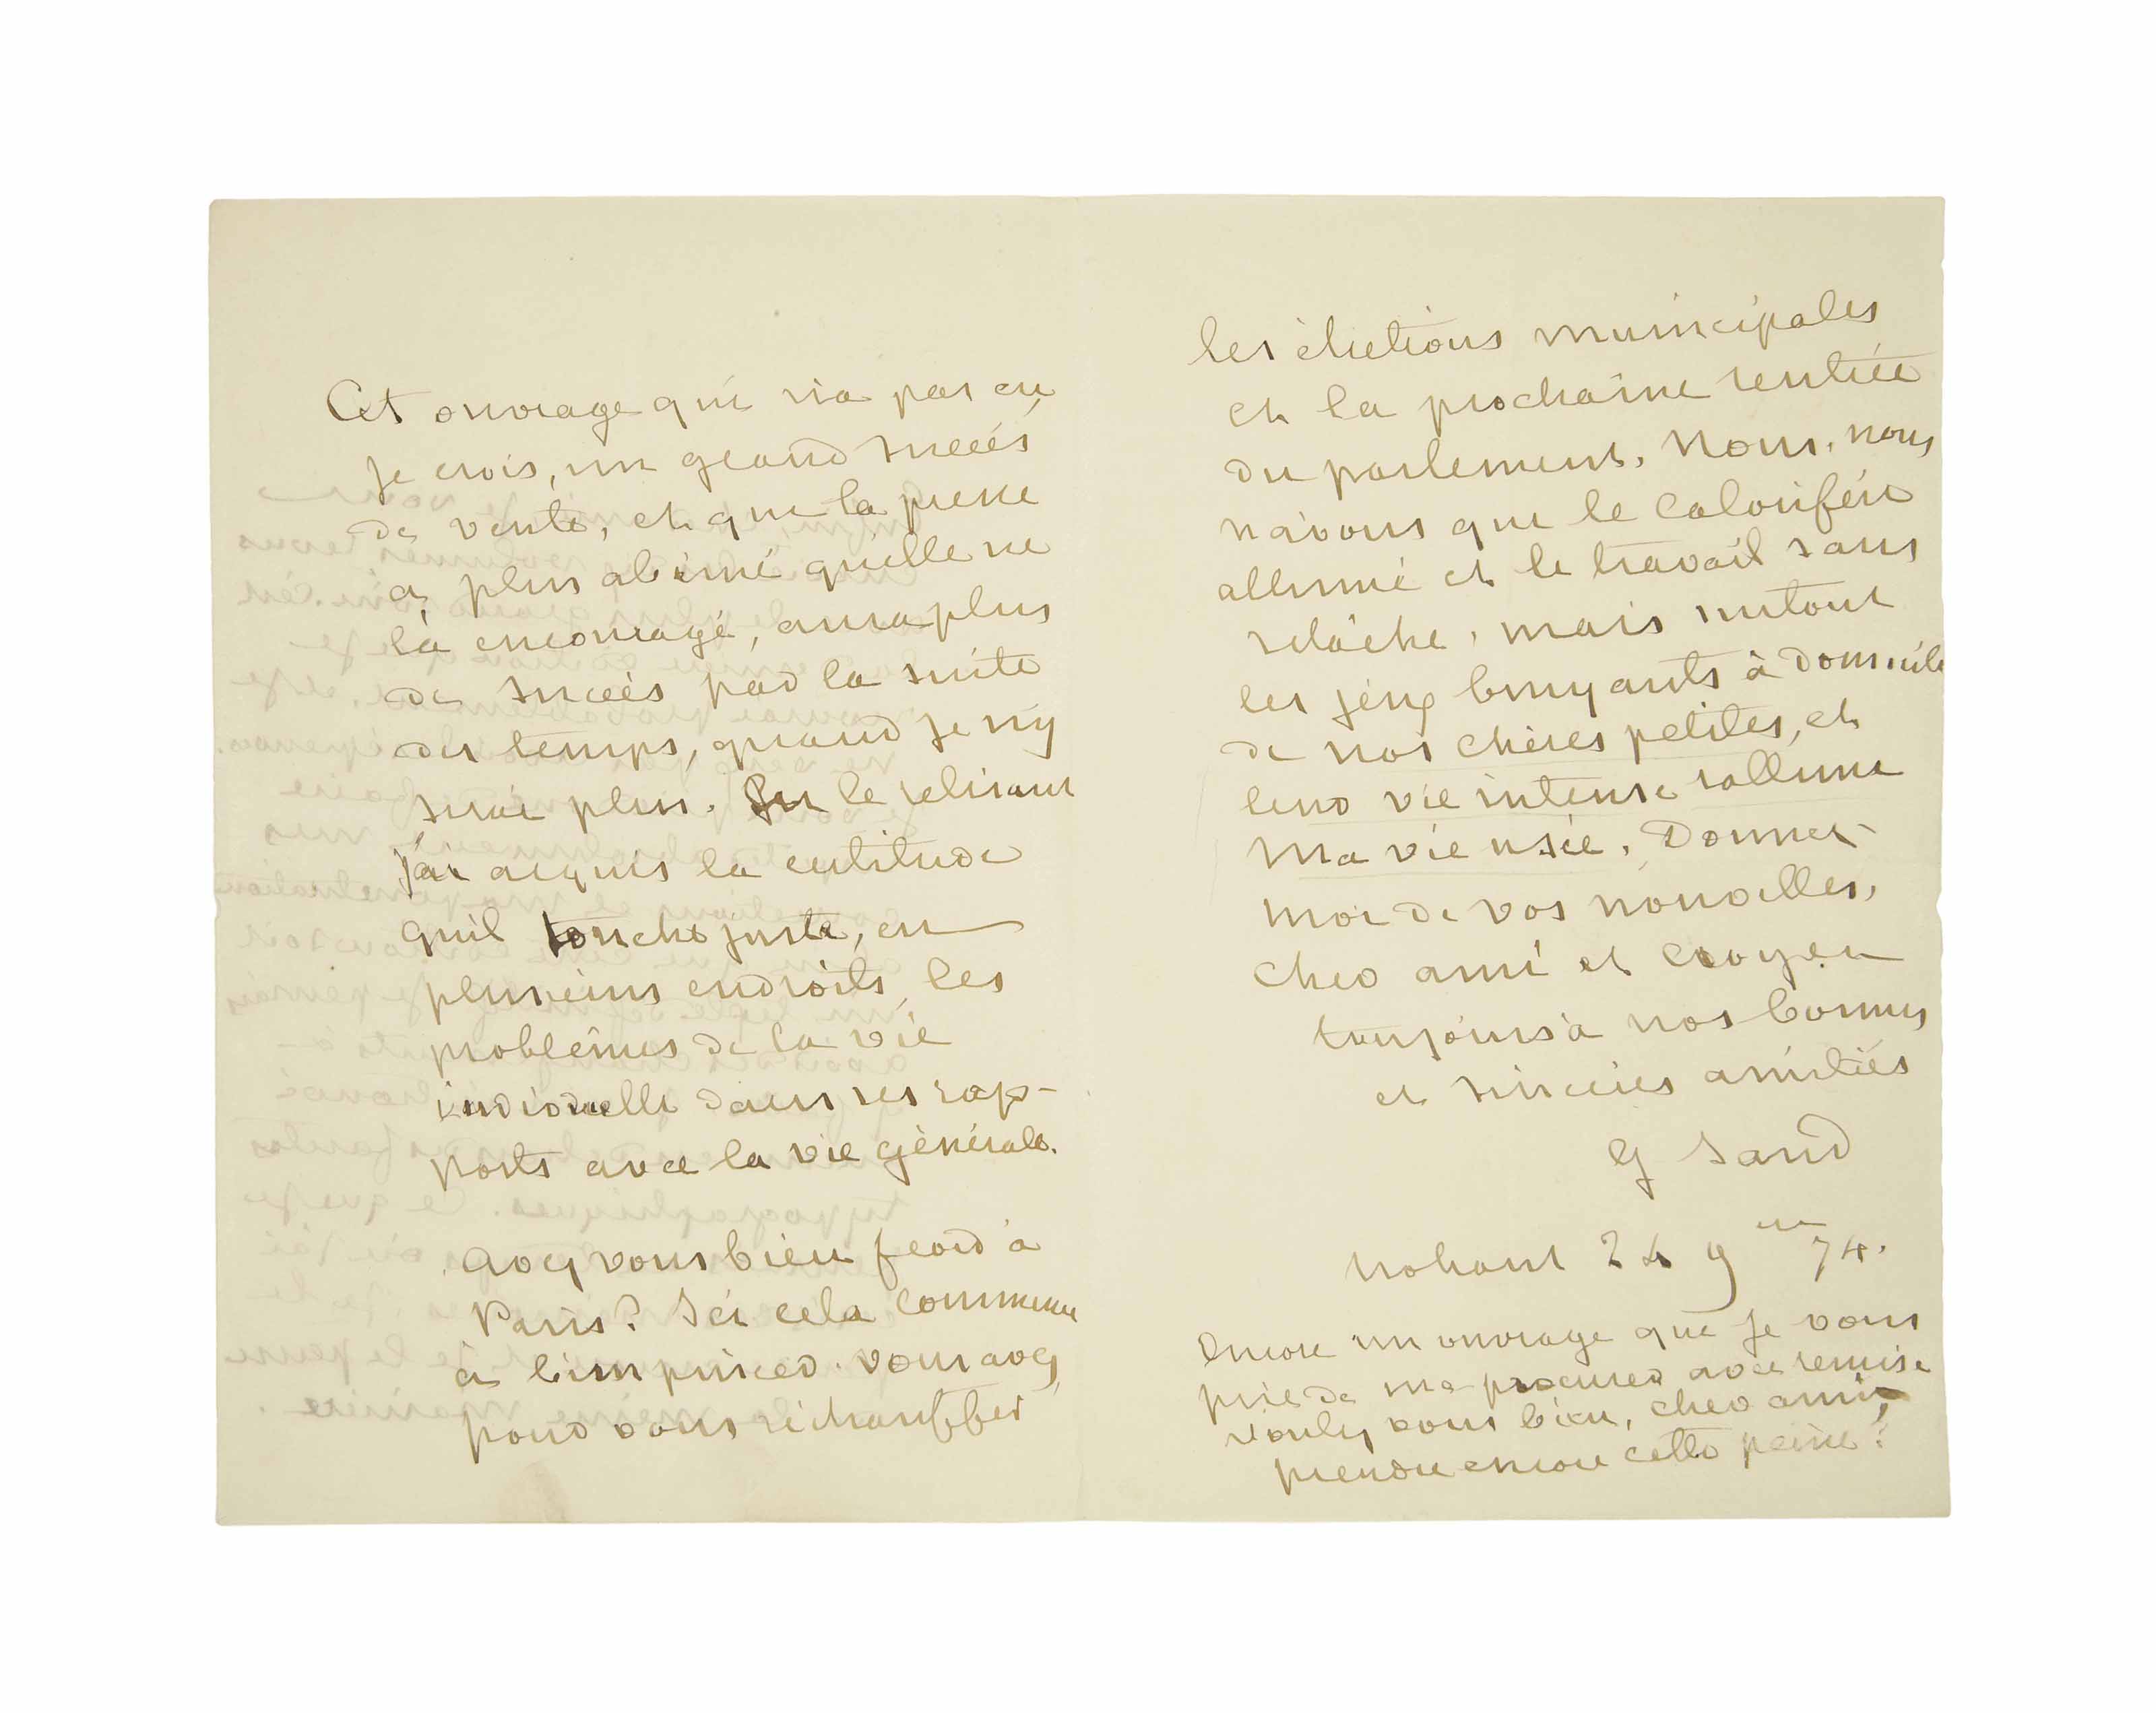 Cet ouvrage qui n'a pas eu,
je crois, un grand succès
de vente, et que la presse
a plus abimé qu'elle ne
l'a encouragé, aura plus
de succès par la suite
des temps, quand je n'y
serai plus. En le relisant
j'ai acquis la certitude
qu'il touche juste, en
plusieurs endroits, les
problêmes de la vie
individuelle dans ses rap-
ports avec la vie générale.
Avez vous bien froid à
Paris? Ici cela commence
à l'improviste. Vous avez
pour vous réchauffer
les élections municipales
et la prochaine rentrée
du parlement. Nous, nous
n'avons que le calorifère
allumé et le travail sans
relâche, mais surtout
les jeux bruyants à domicile
de nos chères petites, et
leur vie intense rallume
ma vie usée. Donnez-
moi de vos nouvelles,
cher ami et croyez
toujours à nos bonnes
et sincères amitiés
G Sand
Nohant 24 9bre 74.
Encore un ouvrage que je vous
prie de me procurer avec remise
voulez vous bien, cher ami,
prendre encore cette peine?